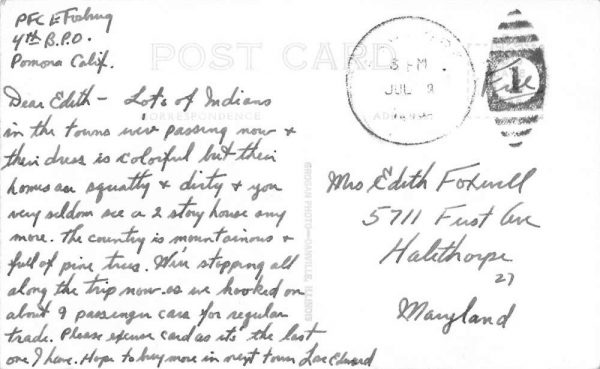 PFC E
4th B.P.O.
Pomona Calif.
POST CARD
3 PM
JUL 9
Free
1
Dear Edith - Lots of Indians
CORRESPONDENCE
in the towns we're passing now &
their dress is colorful but their
homes are squatty & dirty & you
very seldom see a 2 story house any
more. The country is mountainous &
full of pine trees. We're stopping all
along the trip now as we hooked on
about 9 passenger cars for regular
trade. Please excuse card as it's the last
one I have. Hope to buy more in next town Love Edward
GROGAN PHOTO-DANVILLE, ILLINOIS
Mrs Edith Foxwell
5711 First Ave
Halethorpe
27
Maryland